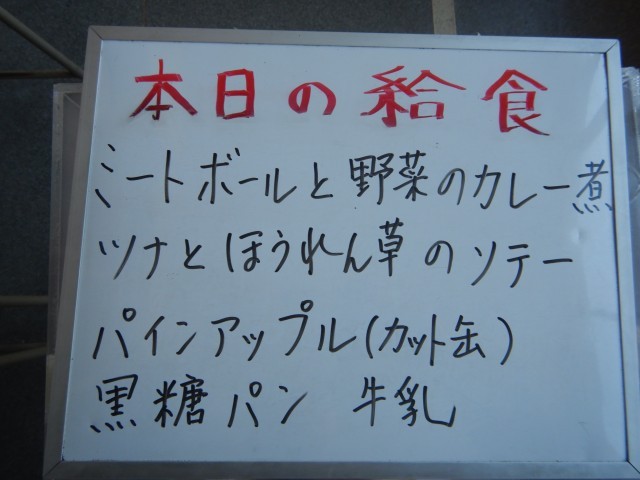 本日の給食
ミートボールと野菜のカレー煮
ツナとほうれん草のソテー
パインアップル(カット缶)
黒糖パン 牛乳